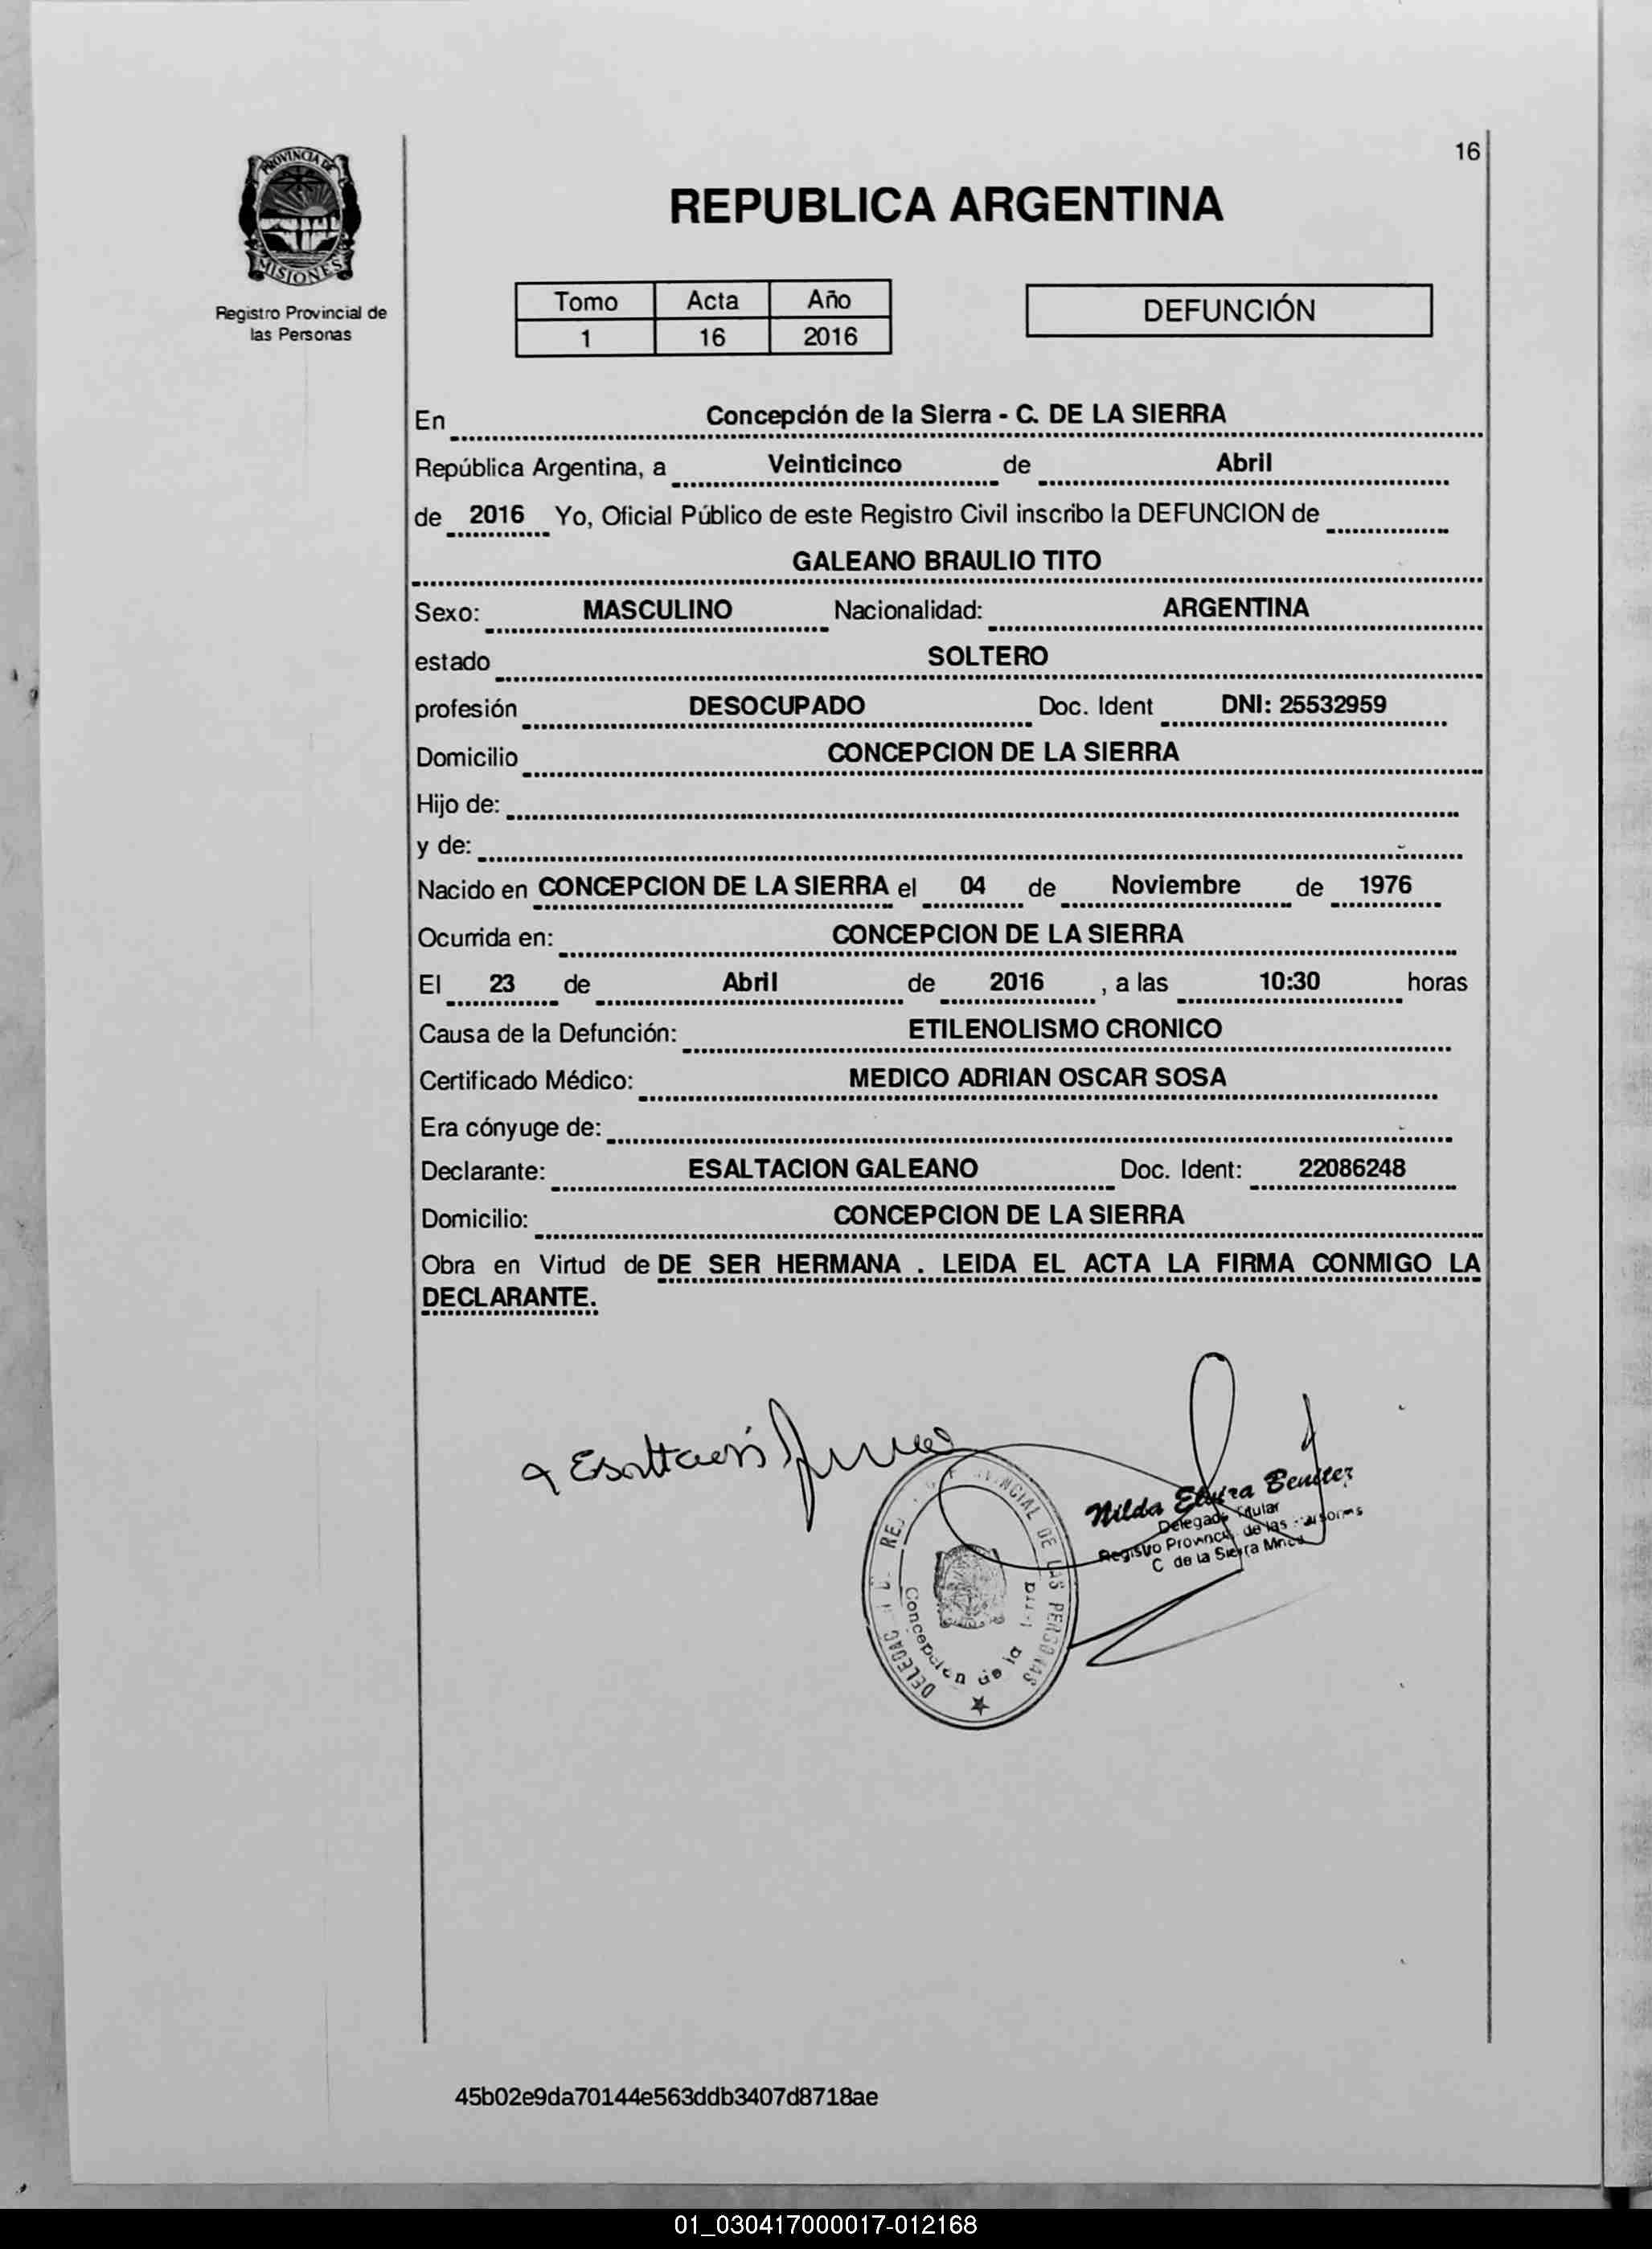 16
PROVINCIA DE
MISIONES
Registro Provincial de
las Personas
REPUBLICA ARGENTINA
Tomo Acta Año
1 16 2016
DEFUNCIÓN
En Concepción de la Sierra - C. DE LA SIERRA
República Argentina, a Veinticinco de Abril
de 2016 Yo, Oficial Público de este Registro Civil inscribo la DEFUNCION de
GALEANO BRAULIO TITO
Sexo: MASCULINO Nacionalidad: ARGENTINA
estado SOLTERO
profesión DESOCUPADO Doc. Ident DNI: 25532959
Domicilio CONCEPCION DE LA SIERRA
Hijo de:
y de:
Nacido en CONCEPCION DE LA SIERRA el 04 de Noviembre de 1976
Ocurrida en: CONCEPCION DE LA SIERRA
El 23 de Abril de 2016 , a las 10:30 horas
Causa de la Defunción: ETILENOLISMO CRONICO
Certificado Médico: MEDICO ADRIAN OSCAR SOSA
Era cónyuge de:
Declarante: ESALTACION GALEANO Doc. Ident: 22086248
Domicilio: CONCEPCION DE LA SIERRA
Obra en Virtud de DE SER HERMANA . LEIDA EL ACTA LA FIRMA CONMIGO LA
DECLARANTE.
Nilda Elvira Benitez
Titular
Registro de las
C de la Sierra
DE LAS PERSONAS
Concepcion de la
45b02e9da70144e563ddb3407d8718ae
01_030417000017-012168